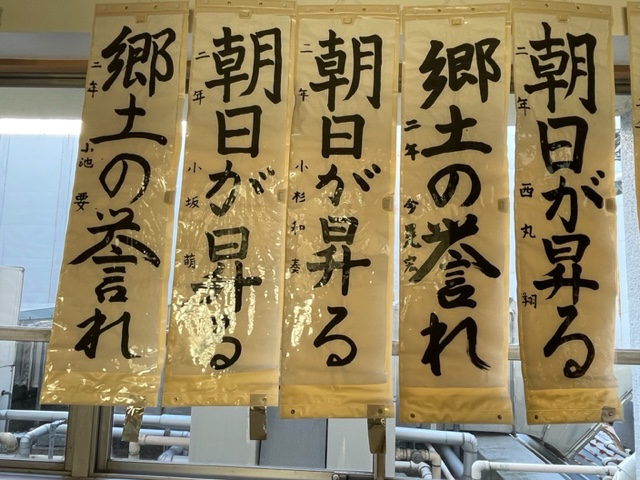 朝日が昇る
二年 西丸 翔
郷土の誉れ
二年
朝日が昇る
二年 小杉和奏
朝日が昇る
二年 小坂 萌
郷土の誉れ
二年 小池 要